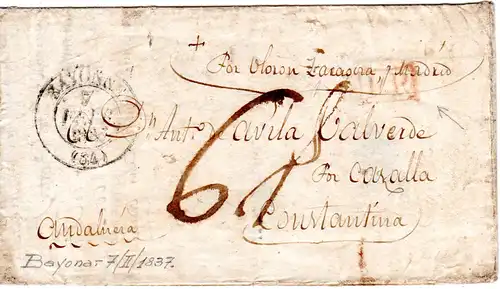 +
Por Oloron Zaragoza y Madrid
BAYONNE
7
(64)
Dn Anto Davila Valverde
Por Cazalla
Constantina
Andalucia
Bayona - 7/II/1837.